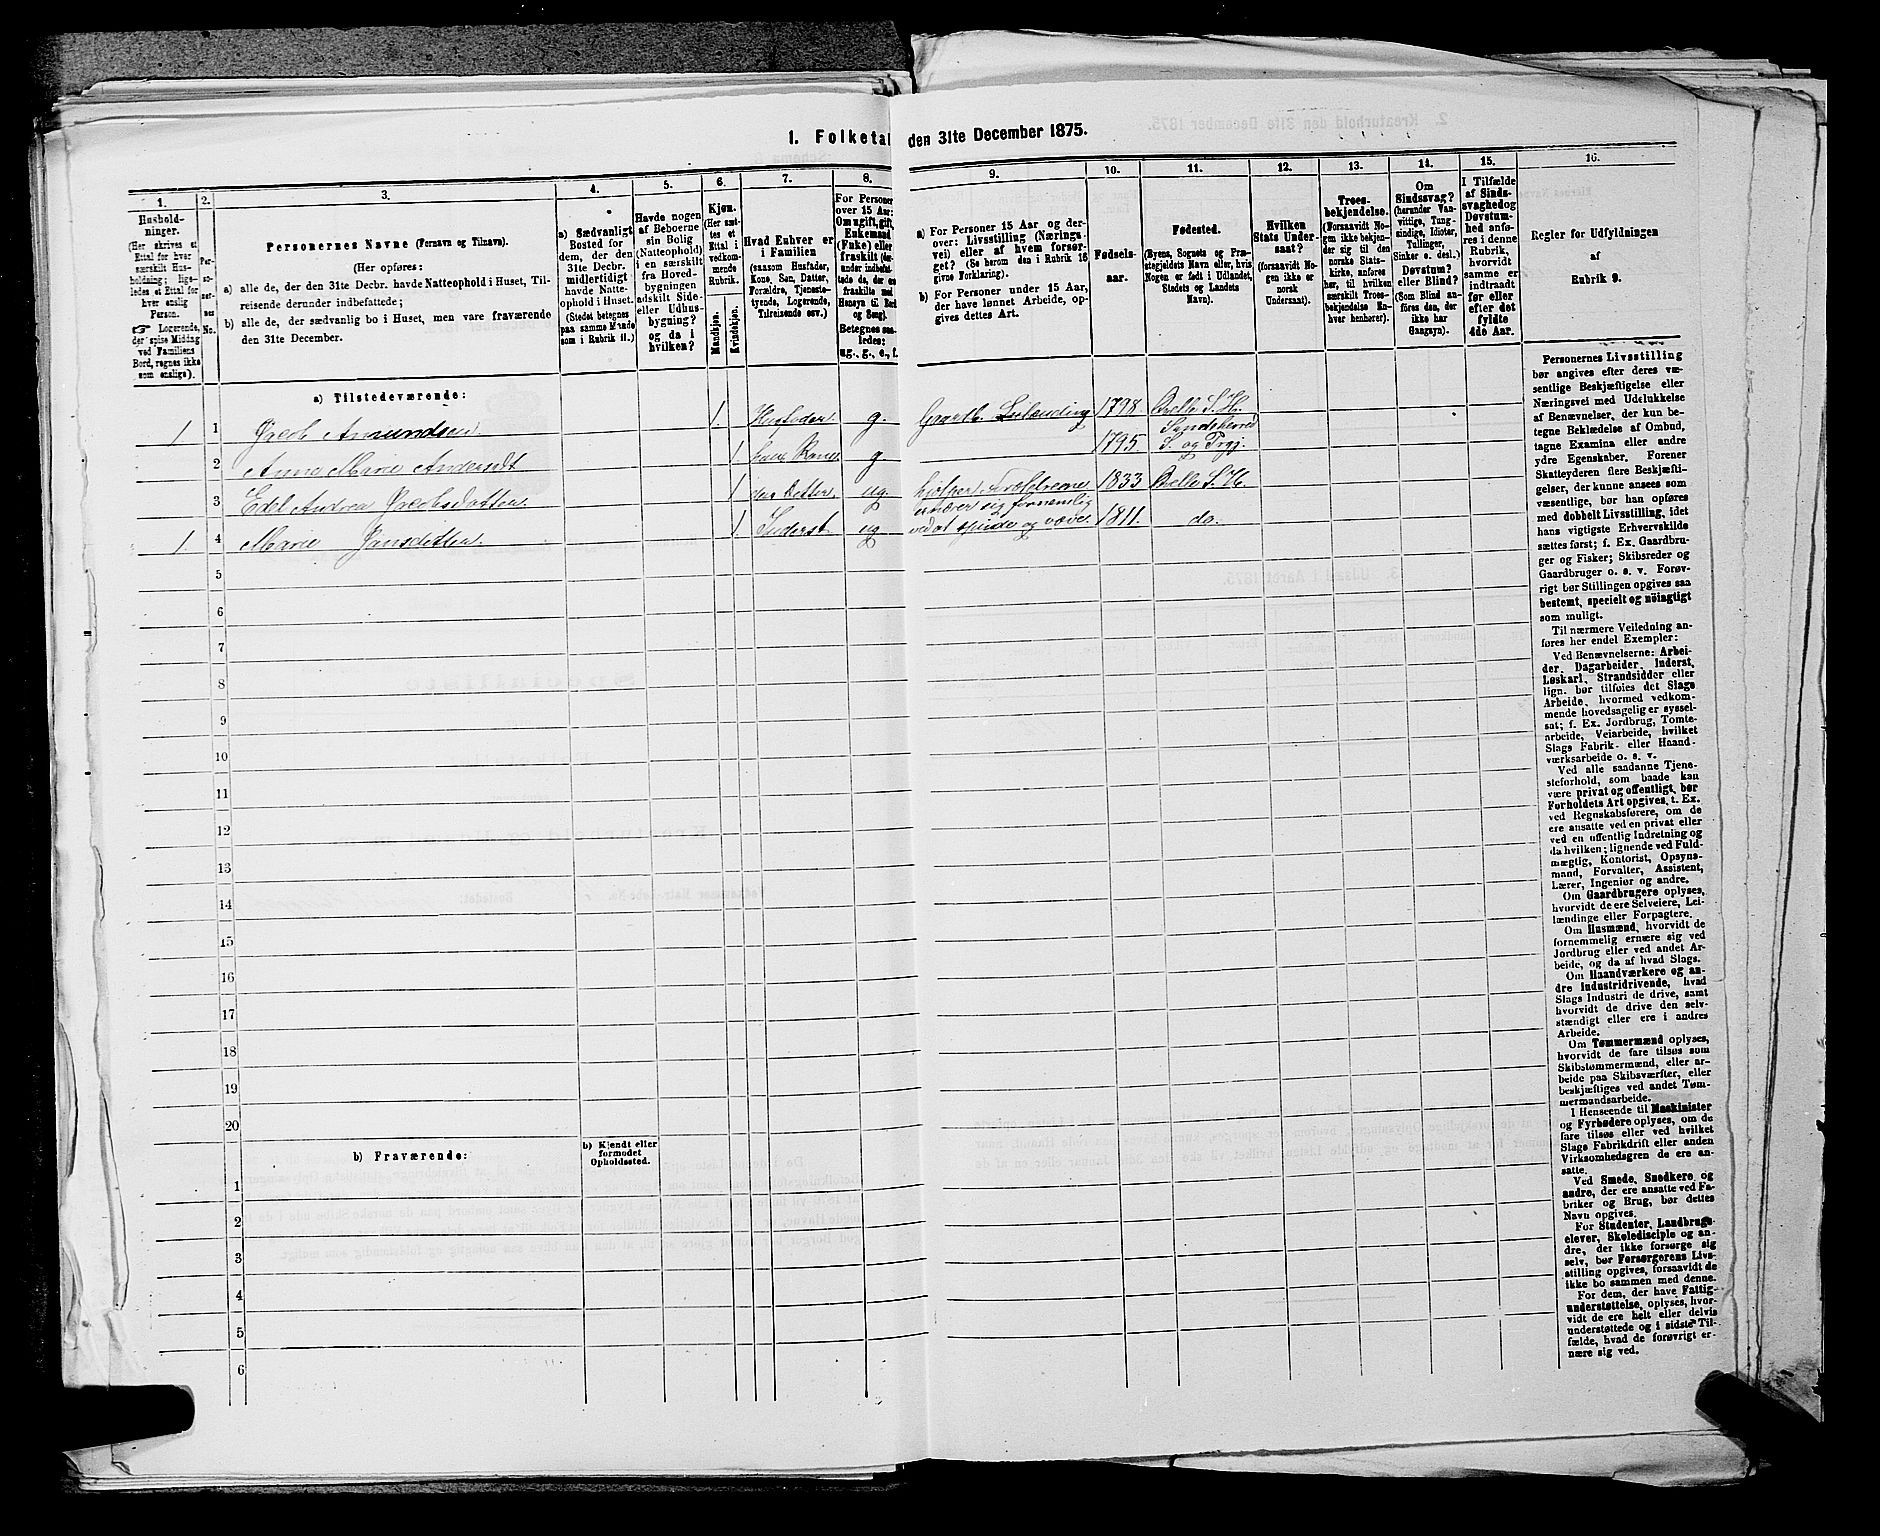 1. Folketal den 31te December 1875.
1. 2. 3. 4. 5. 6. 7. 8. 9. 10. 11. 12. 13. 14. 15. 16.
Hushold-
ninger.
(Her skrives et
Ettal for hver
særskilt Hus-
holdning; lige-
ledes et Ettal for
hver enslig
Person.
☞ Logerende,
der spise Middag
ved Familiens
Bord, regnes ikke
som enslige).
Per-
so-
ner-
nes
No.
Personernes Navne (Fornavn og Tilnavn).
(Her opføres:
a) alle de, der den 31te Decbr. havde Natteophold i Huset, Til-
reisende derunder indbefattede;
b) alle de, der sædvanlig bo i Huset, men vare fraværende
den 31te December.
a) Sædvanligt
Bosted for
dem, der den
31te Decbr.
midlertidigt
havde Natte-
ophold i Huset.
(Stedet betegnes
paa samme Maade
som i Rubrik 11.)
Havde nogen
af Beboerne
sin Bolig
(Natteophold)
i en særskilt
fra Hoved-
bygningen
adskilt Side-
eller Udhus-
bygning?
og da i
hvilken?
Kjøn.
(Her sæt-
tes et
Ettal i
vedkom-
mende
Rubrik.
Mandkjøn.
Kvindekjøn.
Hvad Enhver er
i Familien
(saasom Husfader,
Kone, Søn, Datter,
Forældre, Tjeneste-
tyende, Logerende,
Tilreisende osv.)
For Personer
over 15 Aar:
Om ugift, gift,
Enkemand
(Enke) eller
fraskilt
Betegnes saa-
ledes:
ug., g., e., f.
a) For Personer 15 Aar og der-
over: Livsstilling (Nærings-
vei) eller af hvem forsør-
get? (Se herom den i Rubrik 16
givne Forklaring).
b) For Personer under 15 Aar,
der have lønnet Arbeide, op-
gives dettes Art.
Fødsels-
aar.
Fødested.
(Byens, Sognets og Præ-
stegjeldets Navn eller, hvis
Nogen er født i Udlandet,
Stedets og Landets
Navn).
Hvilken
Stats Under-
saat?
(forsaavidt No-
gen ikke er
norsk
Undersaat).
Troes-
bekjendelse.
(Forsaavidt No-
gen ikke bekjen-
der sig til den
norske Stats-
kirke, anføres
her, til hvilken
særskilt Troes-
bekjendelse En-
hver henhører).
Om
Sindssvag?
(herunder Van-
vittige, Tung-
sindige, Idioter,
Tullinger,
Sinker o. desl.)
Døvstum?
eller Blind?
(Som Blind an-
føres den, der
ikke har
Gangsyn).
I Tilfælde
af Sinds-
svaghed og
Døvstum-
hed anfø-
res i denne
Rubrik,
hvorvidt
samme er
indtraadt
før eller
efter det
fyldte
4de Aar.
Regler for Udfyldningen
af
Rubrik 9.
a) Tilstedeværende:
1 1 Jacob Amundsen. 1. Husfader g. Gaardb. 1798 S. H.
2 Anne Marie Andersdt 1. hans Kone g 1795. Sandeherred S. og Prgj.
3 Edel Andrea Jacobsdatter 1 deres Datter. ug. hjelper Forældrene 1833 S. H.
1 4 Marie Jansdatter. 1. Inderst ug ernærer sig fornemlig
ved at spinde og væve. 1811. do.
5
6
7
8
9
10
11
12
13
14
15
16
17
18
19
20
b) Fraværende:
b) Kjendt eller
formodet
Opholdssted.
1
2
3
4
5
6
Personernes Livsstilling
bør angives efter deres væ-
sentlige Beskjæftigelse eller
Næringsvei med Udelukkelse
af Benævnelser, der kun be-
tegne Beklædelse af Ombud,
tagne Examina eller andre
ydre Egenskaber. Forener
Skatteyderen flere Beskjæfti-
gelser, der kunne ansees som
væsentlige, bør han opføres
med dobbelt Livsstilling, idet
hans vigtigste Erhvervskilde
sættes først; f. Ex. Gaardbru-
ger og Fisker; Skibsreder og
Gaardbruger o. s. v. Forøv-
rigt bør Stillingen opgives saa
bestemt, specielt og nøiagtigt
som muligt.
Til nærmere Veiledning an-
føres her endel Exempler:
Ved Benævnelserne: Arbei-
der, Dagarbeider, Inderst,
Løskarl, Strandsidder eller
lign. bør tilføies det Slags
Arbeide, hvormed vedkom-
mende hovedsagelig er syssel-
sat; f. Ex. Jordbrug, Tomte-
arbeide, Veiarbeide, hvilket
Slags Fabrik- eller Haand-
værksarbeide o. s. v.
Ved alle saadanne Tjene-
steforhold, som baade kan
være privat og offentligt, bør
Forholdets Art opgives, t. Ex.
ved Regnskabsførere, om de
ere ansatte ved en privat eller
ved en offentlig Indretning og
da hvilken; lignende ved Fuld-
mægtig, Kontorist, Opsyns-
mand, Forvalter, Assistent,
Lærer, Ingeniør og andre.
Om Gaardbrugere oplyses,
hvorvidt de ere Selveiere, Lei-
lændinge eller Forpagtere.
Om Husmænd, hvorvidt de
fornemmelig ernære sig ved
Jordbrug eller ved andet Ar-
beide, og da af hvad Slags.
Om Haandværkere og an-
dre Industridrivende, hvad
Slags Industri de drive, samt
hvorvidt de drive den selv-
stændigt eller ere i andres
Arbeide.
Om Tømmermænd oplyses,
hvorvidt de fare tilsøs som
Skibstømmermænd, eller ar-
beide paa Skibsværfter, eller
beskjæftiges ved andet Tøm-
mermandsarbeide.
I Henseende til Maskinister
og Fyrbødere oplyses, om de
fare tilsøs eller ved hvilket
Slags Fabrikdrift eller anden
Virksomhedsgren de ere an-
satte.
Ved Smede, Snedkere og
andre, der ere ansatte ved Fa-
briker og Brug, bør dettes
Navn opgives.
For Studenter, Landbrugs-
elever, Skoledisciple og an-
dre, der ikke forsørge sig
selv, bør Forsørgerens Livs-
stilling opgives, forsaavidt de
ikke bo sammen med denne.
For dem, der have Fattig-
understøttelse, oplyses, hvor-
vidt de ere helt eller delvis
understøttede og i sidste Til-
fælde, hvad de forøvrigt er-
nære sig ved.